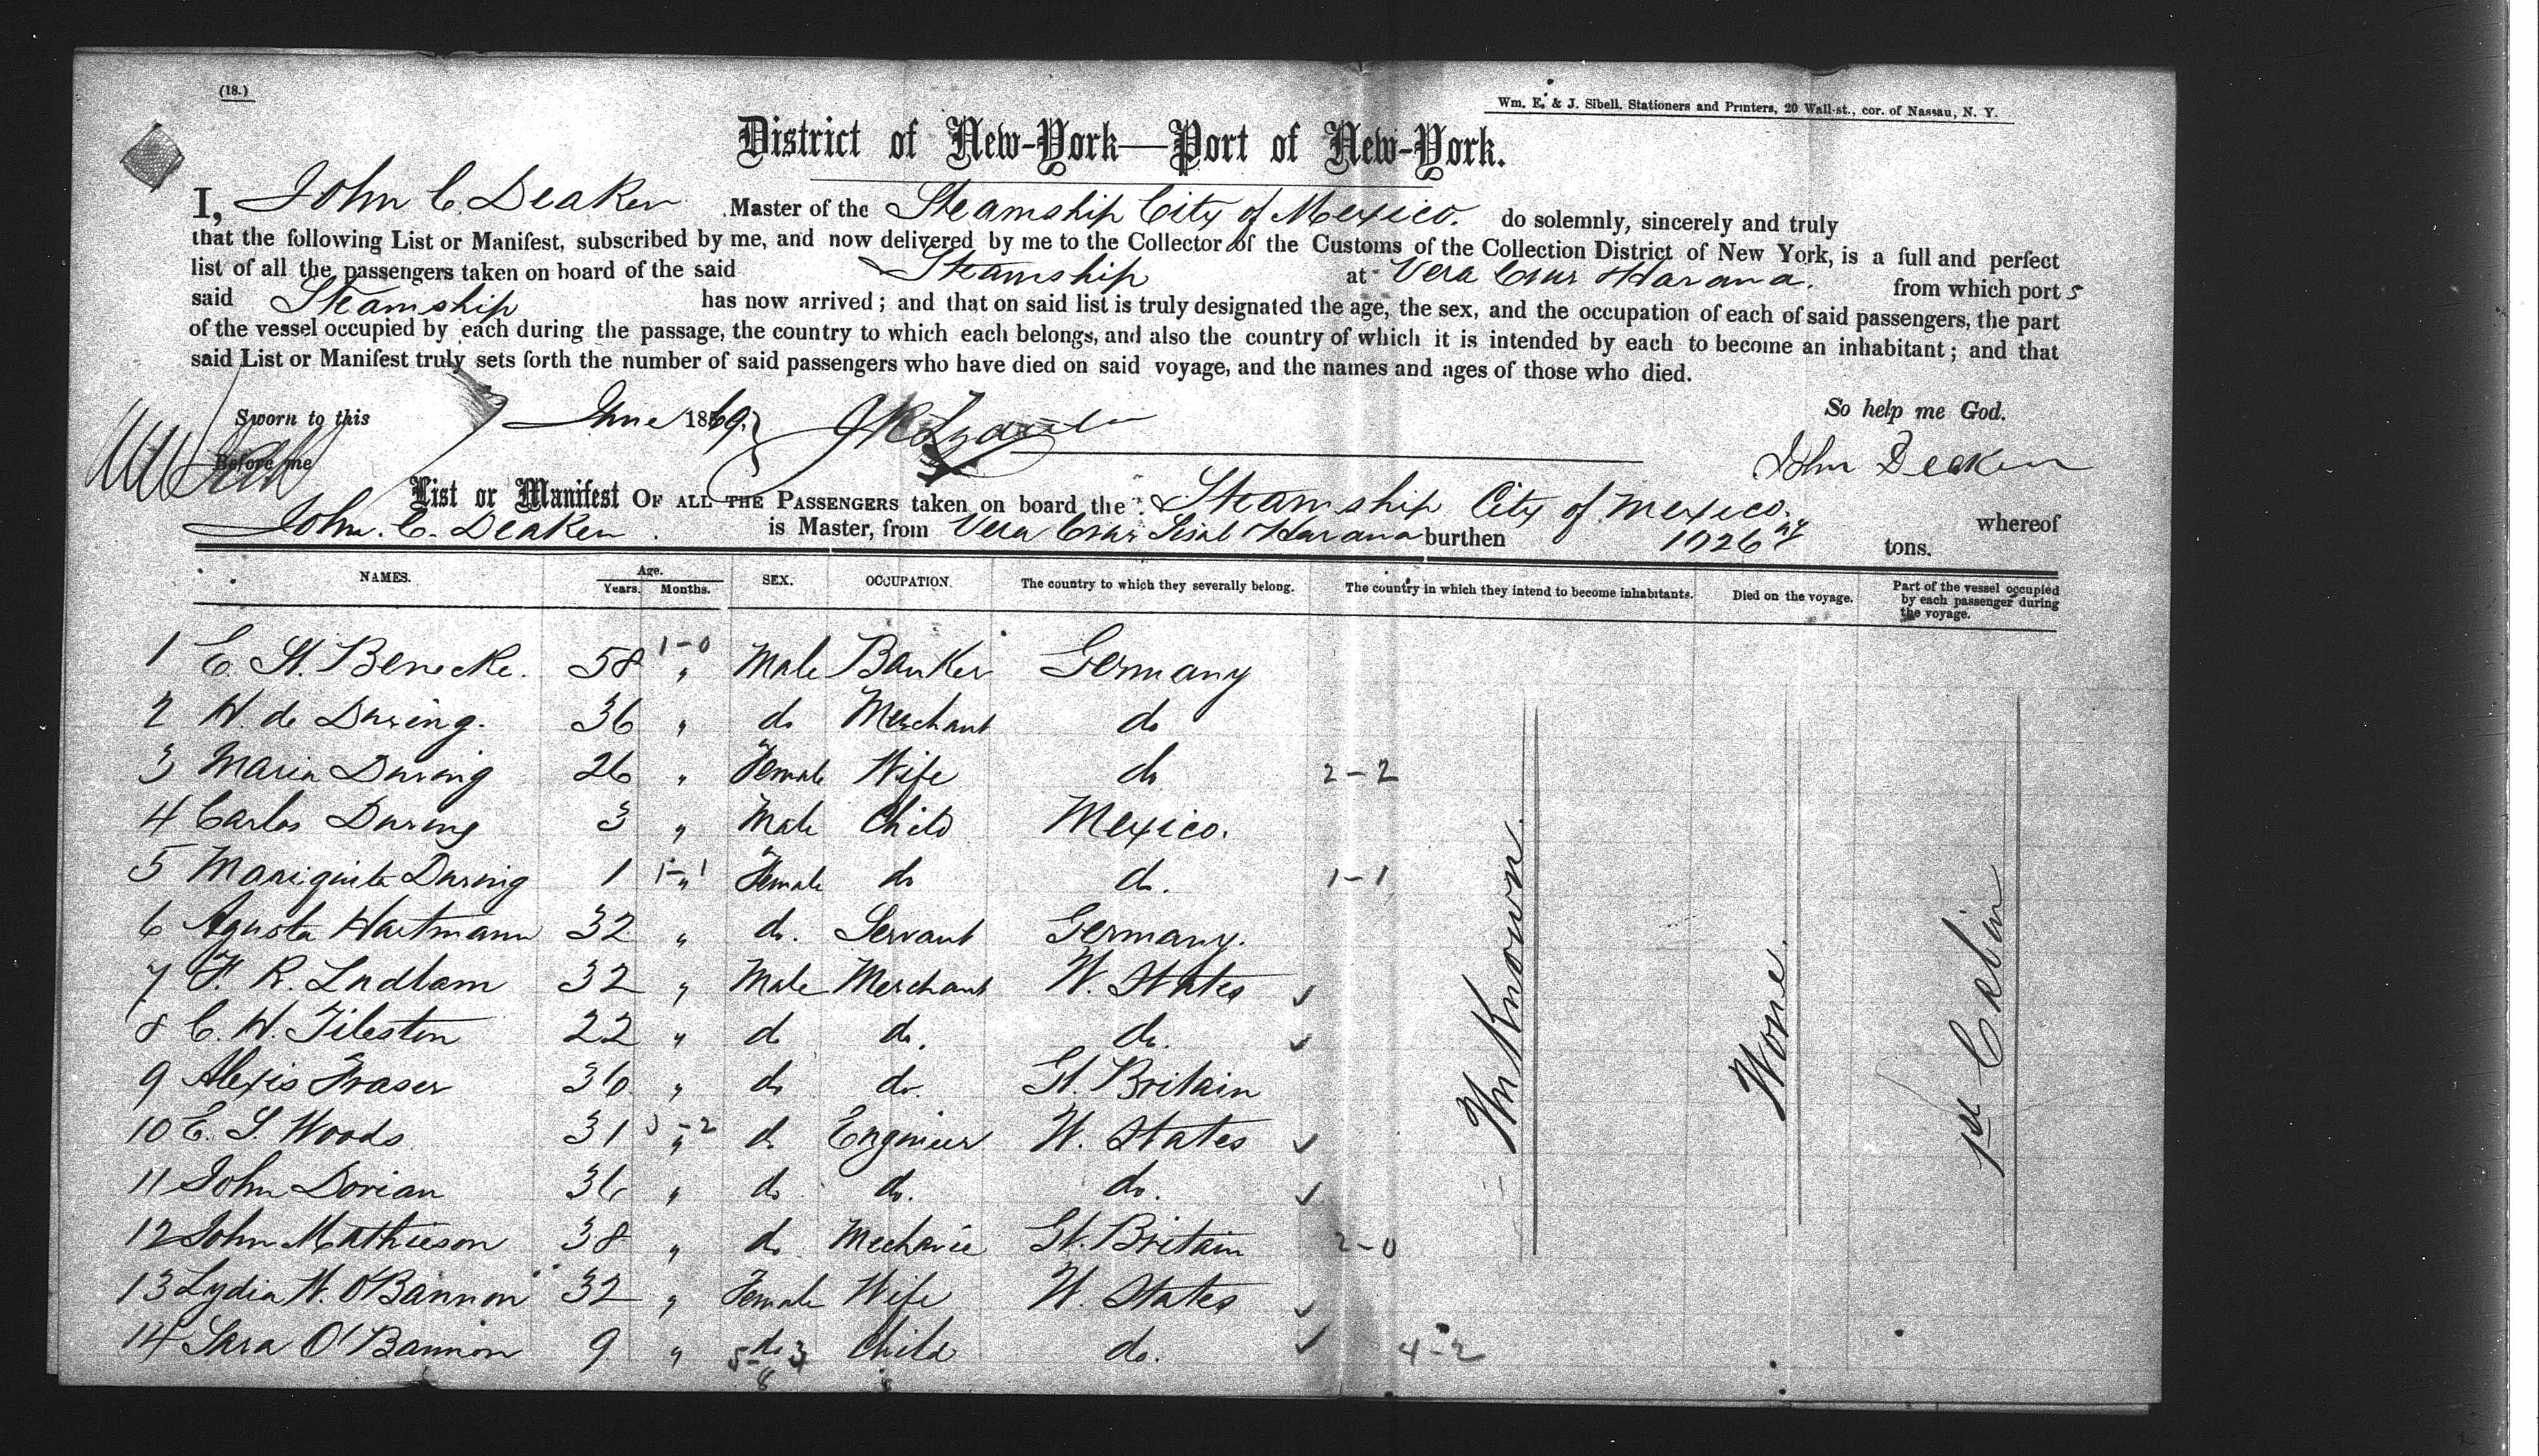 (18.)
Wm. E. & J. Sibell, Stationers and Printers, 20 Wall-st., cor. of Nassau, N. Y.
District of New-York—Port of New-York.
I, John C. Deaken Master of the Steamship City of Mexico. do solemnly, sincerely and truly
that the following List or Manifest, subscribed by me, and now delivered by me to the Collector of the Customs of the Collection District of New York, is a full and perfect
list of all the passengers taken on board of the said Steamship at Vera Cruz Havana. from which port s
said Steamship has now arrived; and that on said list is truly designated the age, the sex, and the occupation of each of said passengers, the part
of the vessel occupied by each during the passage, the country to which each belongs, and also the country of which it is intended by each to become an inhabitant; and that
said List or Manifest truly sets forth the number of said passengers who have died on said voyage, and the names and ages of those who died.
Sworn to this 7 June 1869. So help me God.
Before me John Deaken
List or Manifest OF ALL THE PASSENGERS taken on board the Steamship City of Mexico. whereof
John. C. Deaken. is Master, from Vera Cruz Sisal Havana burthen 1026 tons.
NAMES. Age. Years. Months. SEX. OCCUPATION. The country to which they severally belong. The country in which they intend to become inhabitants. Died on the voyage. Part of the vessel occupied by each passenger during the voyage.
1 E. St. Benecke. 58 1-0 " Male Banker Germany
2 H. de During. 36 " do Merchant do
3 Maria During 26 " Female Wife do 2-2
4 Carlos During 3 " Male Child Mexico.
5 Mariquita During 1 1-1 " Female do do. 1-1
6 Agusta Hartmann 32 " do. Servant Germany.
7 F. R. Ludlam 32 " Male Merchant U. States ✓
8 C. H. Tileston 22 " do do. do. ✓
9 Alexis Fraser 36 " do do. Gt. Britain
10 E. S. Woods 31 " do Engineer U. States ✓
11 John Dorian 36 " do do. do. ✓
12 John Mathieson 38 " do Mechanic Gt. Britain 2-0
13 Lydia H. O'Bannon 32 " Female Wife U. States ✓
14 Sara O'Bannon 9 " do Child do. ✓ 4-2
5 3
8
UnKnown.
None.
1st Cabin